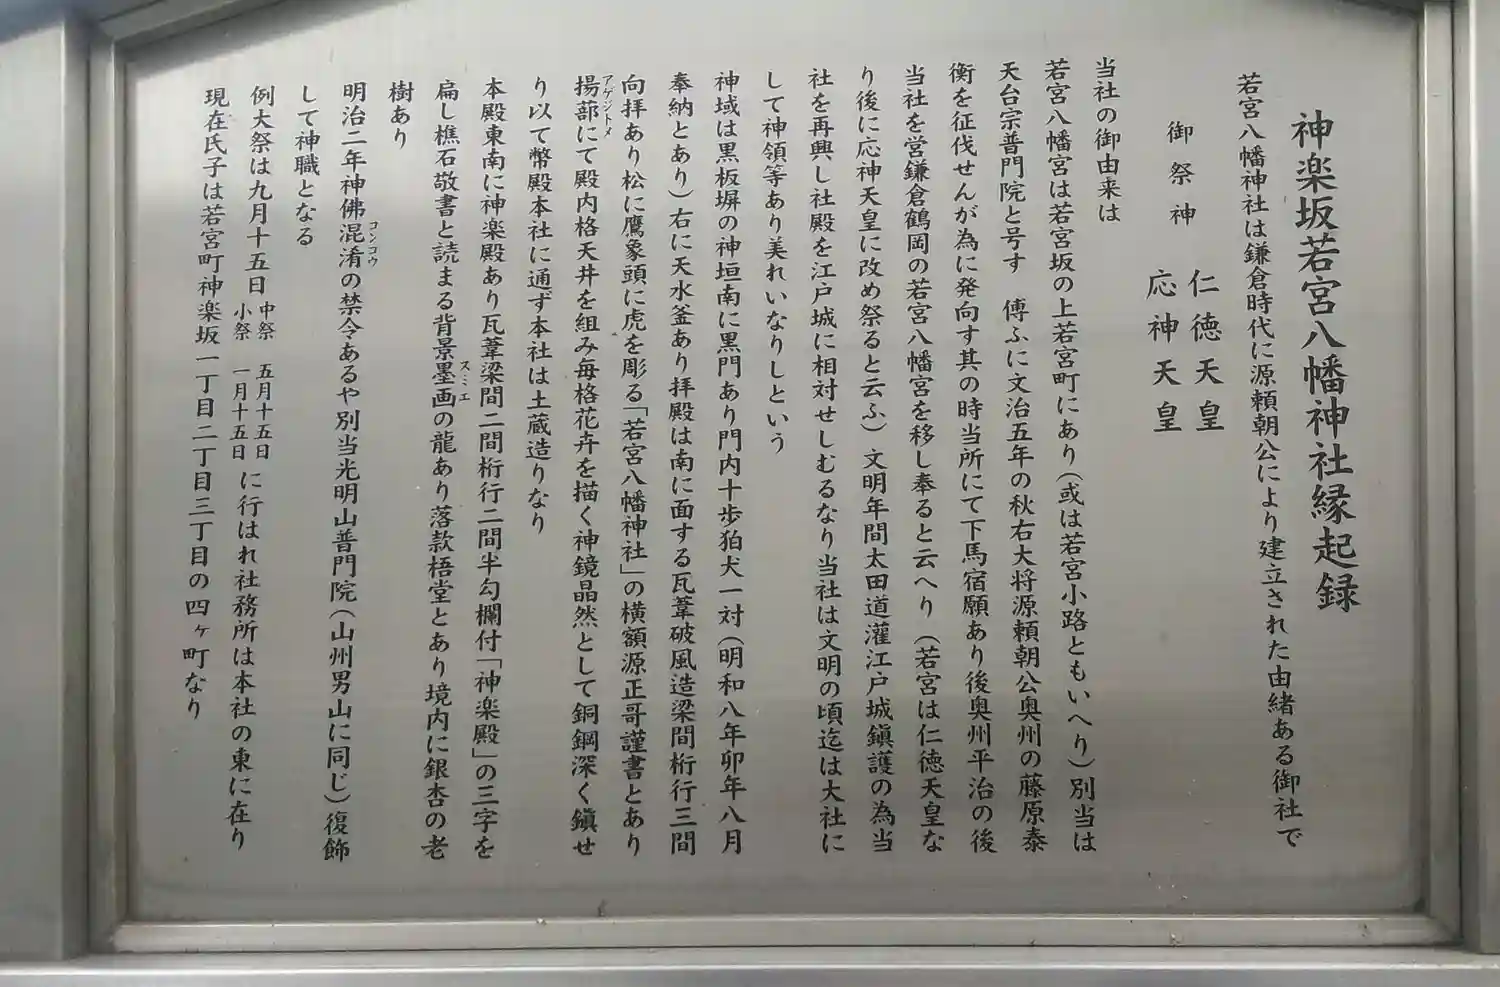 神楽坂若宮八幡神社縁起録
若宮八幡神社は鎌倉時代に源頼朝公により建立された由緒ある御社で
御祭神 仁徳天皇
応神天皇
当社の御由来は
若宮八幡宮は若宮坂の上若宮町にあり(或は若宮小路ともいへり)別当は
天台宗普門院と号す 傳ふに文治五年の秋右大将源頼朝公奥州の藤原泰
衡を征伐せんが為に発向す其の時当所にて下馬宿願あり後奥州平治の後
当社を営鎌倉鶴岡の若宮八幡宮を移し奉ると云へり(若宮は仁徳天皇な
り後に応神天皇に改め祭ると云ふ)文明年間太田道灌江戸城鎮護の為当
社を再興し社殿を江戸城に相対せしむるなり当社は文明の頃迄は大社に
して神領等あり美れいなりしという
神域は黒板塀の神垣南に黒門あり門内十歩狛犬一対(明和八年卯年八月
奉納とあり)右に天水釜あり拝殿は南に面する瓦葺破風造梁間桁行三間
向拝あり松に鷹象頭に虎を彫る「若宮八幡神社」の横額源正哥謹書とあり
揚蔀アゲジトメにて殿内格天井を組み毎格花卉を描く神鏡晶然として銅鋼深く鎮せ
り以て幣殿本社に通ず本社は土蔵造りなり
本殿東南に神楽殿あり瓦葺梁間二間桁行二間半勾欄付「神楽殿」の三字を
扁し樵石敬書と読まる背景墨画スミエの龍あり落款梧堂とあり境内に銀杏の老
樹あり
明治二年神佛混淆コンコウの禁令あるや別当光明山普門院(山州男山に同じ)復飾
して神職となる
例大祭は九月十五日 中祭 五月十五日 小祭 一月十五日 に行はれ社務所は本社の東に在り
現在氏子は若宮町神楽坂一丁目二丁目三丁目の四ヶ町なり